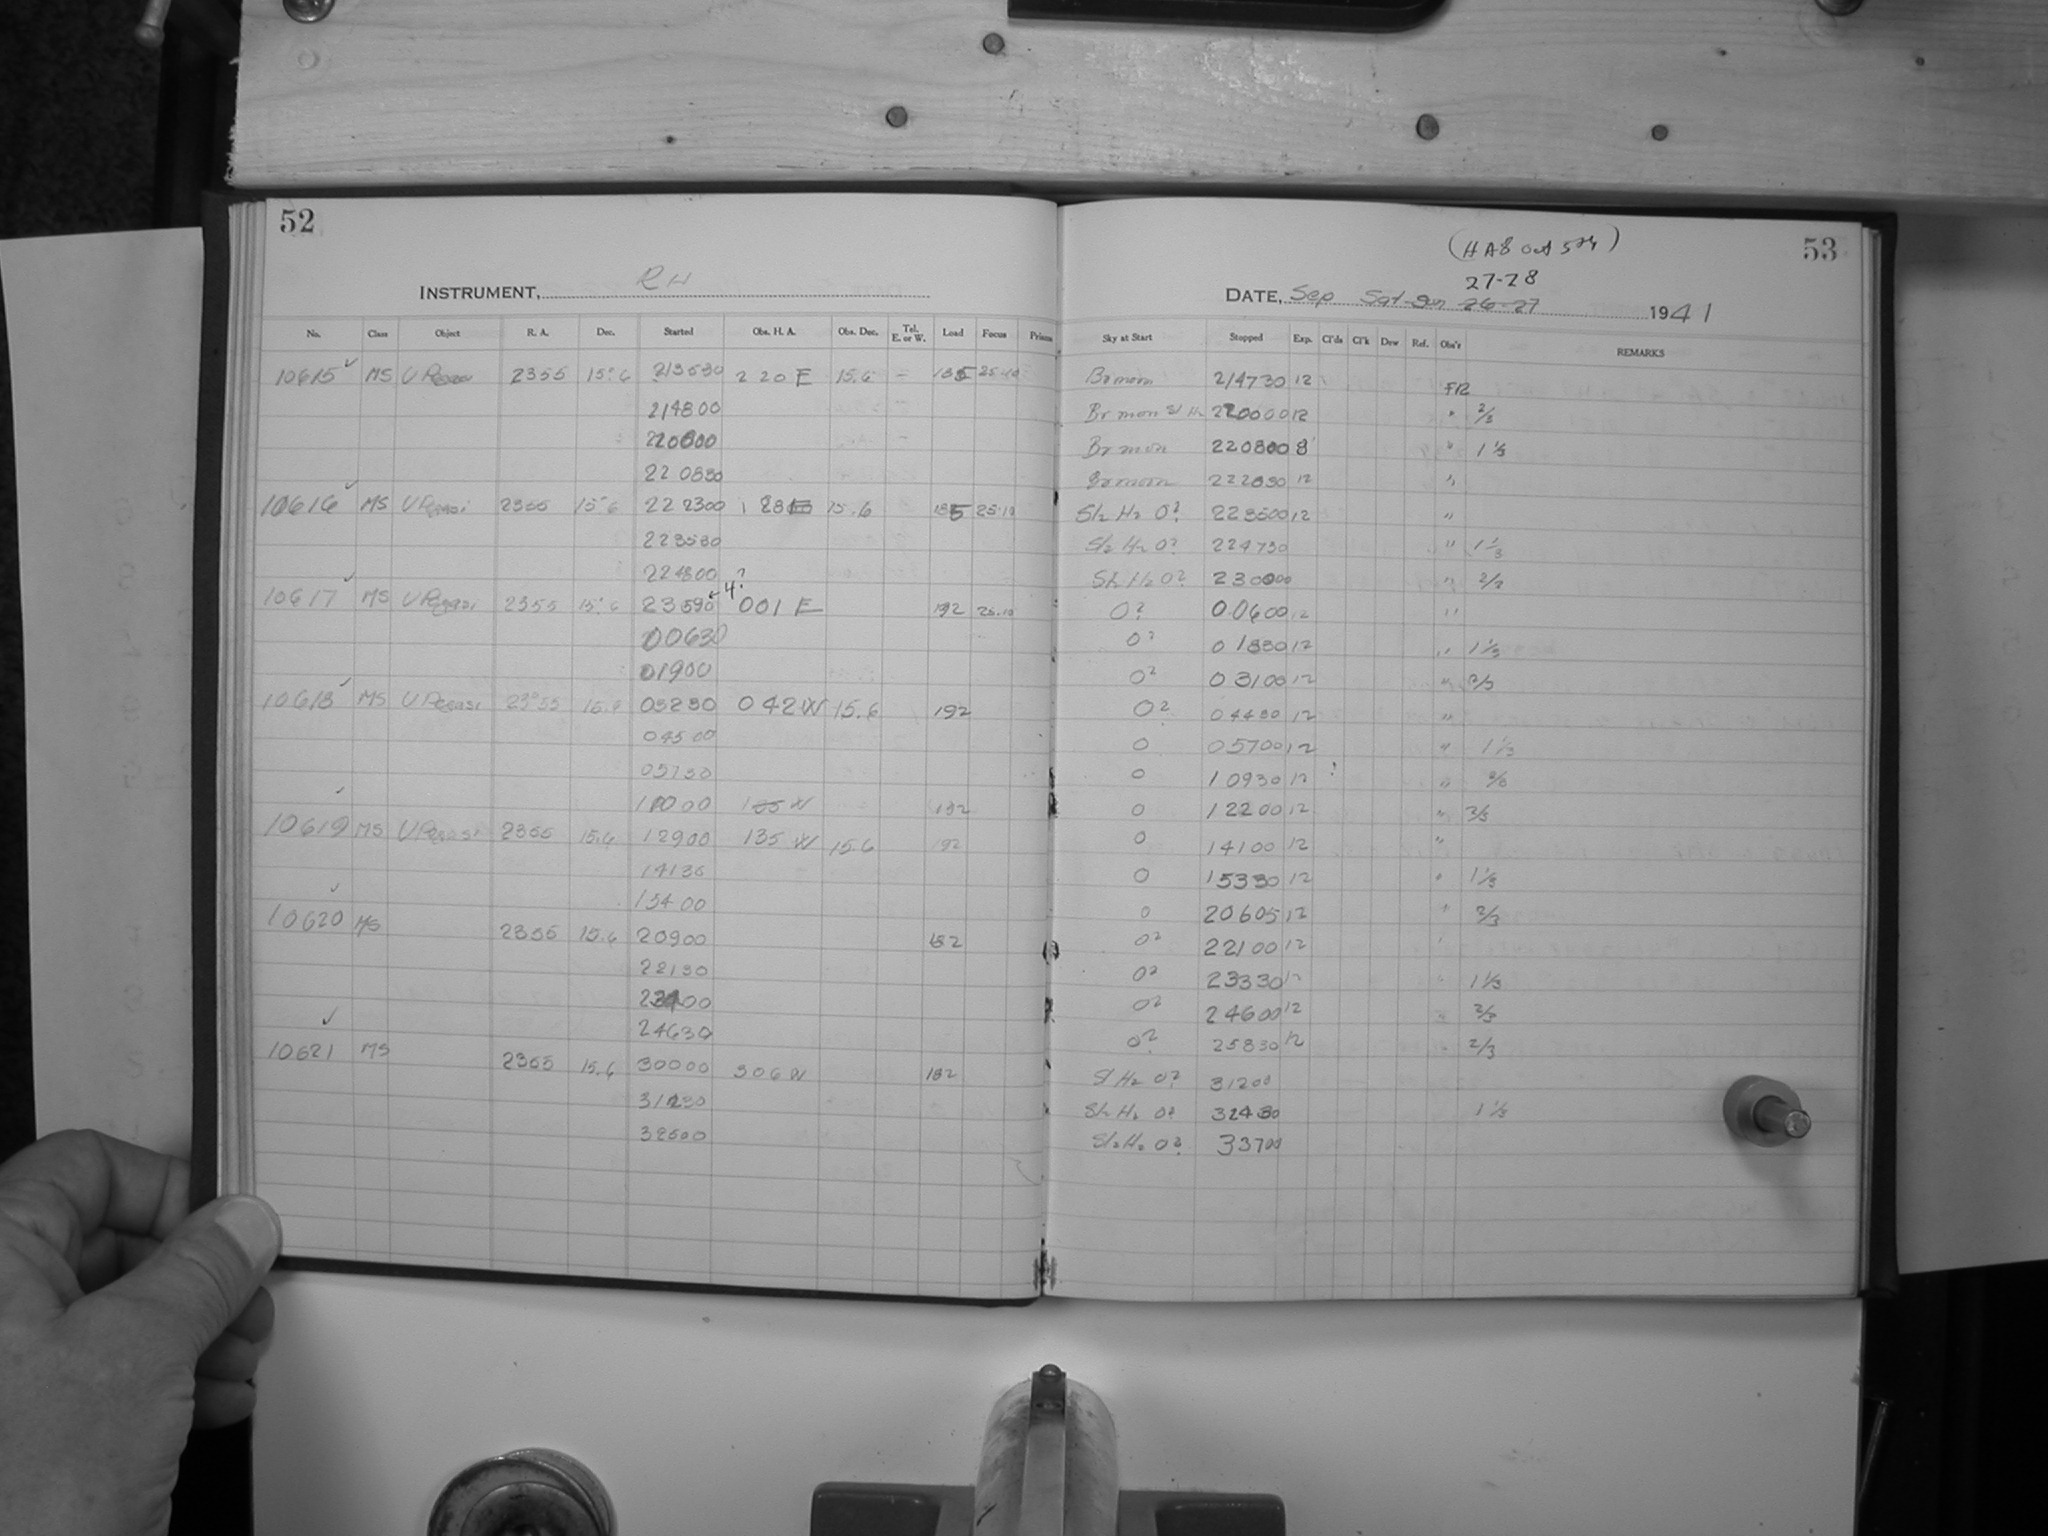 52
INSTRUMENT, RH
No. Class Object R. A. Dec. Started Obs. H. A. Obs. Dec. Tel. E. or W. Load Focus
10615 MS U 2355 15°6 213530 2 20 E 15.6 - 25.10
214800
220830
10616 MS U Pegasi 2355 15°6 222300 15.6 25.10
223530
224800
10617 MS U Pegasi 2355 15°6 23590 4? 001 E 192 25.10
00630
01900
10618 MS U Pegasi 2355 15.6 03230 042 W 15.6 192
04500
05730
W
10619 MS U Pegasi 2355 15.6 12900 135 W 15.6 192
14130
15400
10620 MS 2355 15.6 20900
22130
23400
24630
10621 MS 2355 15.6 30000 306 W
31230
32500
53
(HA8 Oct 5th)
27-28
DATE, Sep Sat-Sun 26-27 1941
Sky at Start Stopped Exp. Cl'ds Cl'k Dew Ref. Obs'r REMARKS
Br moon 214730 12 FR
Br moon Sl H 220000 12 " 2/3
Br moon 220800 8 " 1 1/3
Br moon 222030 12 "
Sl. Hz O? 223500 12 "
Sl. Hz O? 224730 " 1 1/3
Sl. Hz O? 230000 " 2/3
O? 00600 12 "
O? 01830 12 " 1 1/3
O? 03100 12 " 2/3
O? 04430 12 "
O 05700 12 " 1 1/3
O 10930 12 ? " 2/3
O 12200 12 " 2/3
O 14100 12 "
O 15330 12 " 1 1/3
O 20605 12 " 2/3
O? 22100 12 "
O? 23330 12 " 1 1/3
O? 24600 12 " 2/3
O? 25830 12 " 2/3
Sl Hz O? 31200
Sl. Hz O? 32430 1 1/3
Sl. Hz O? 33700